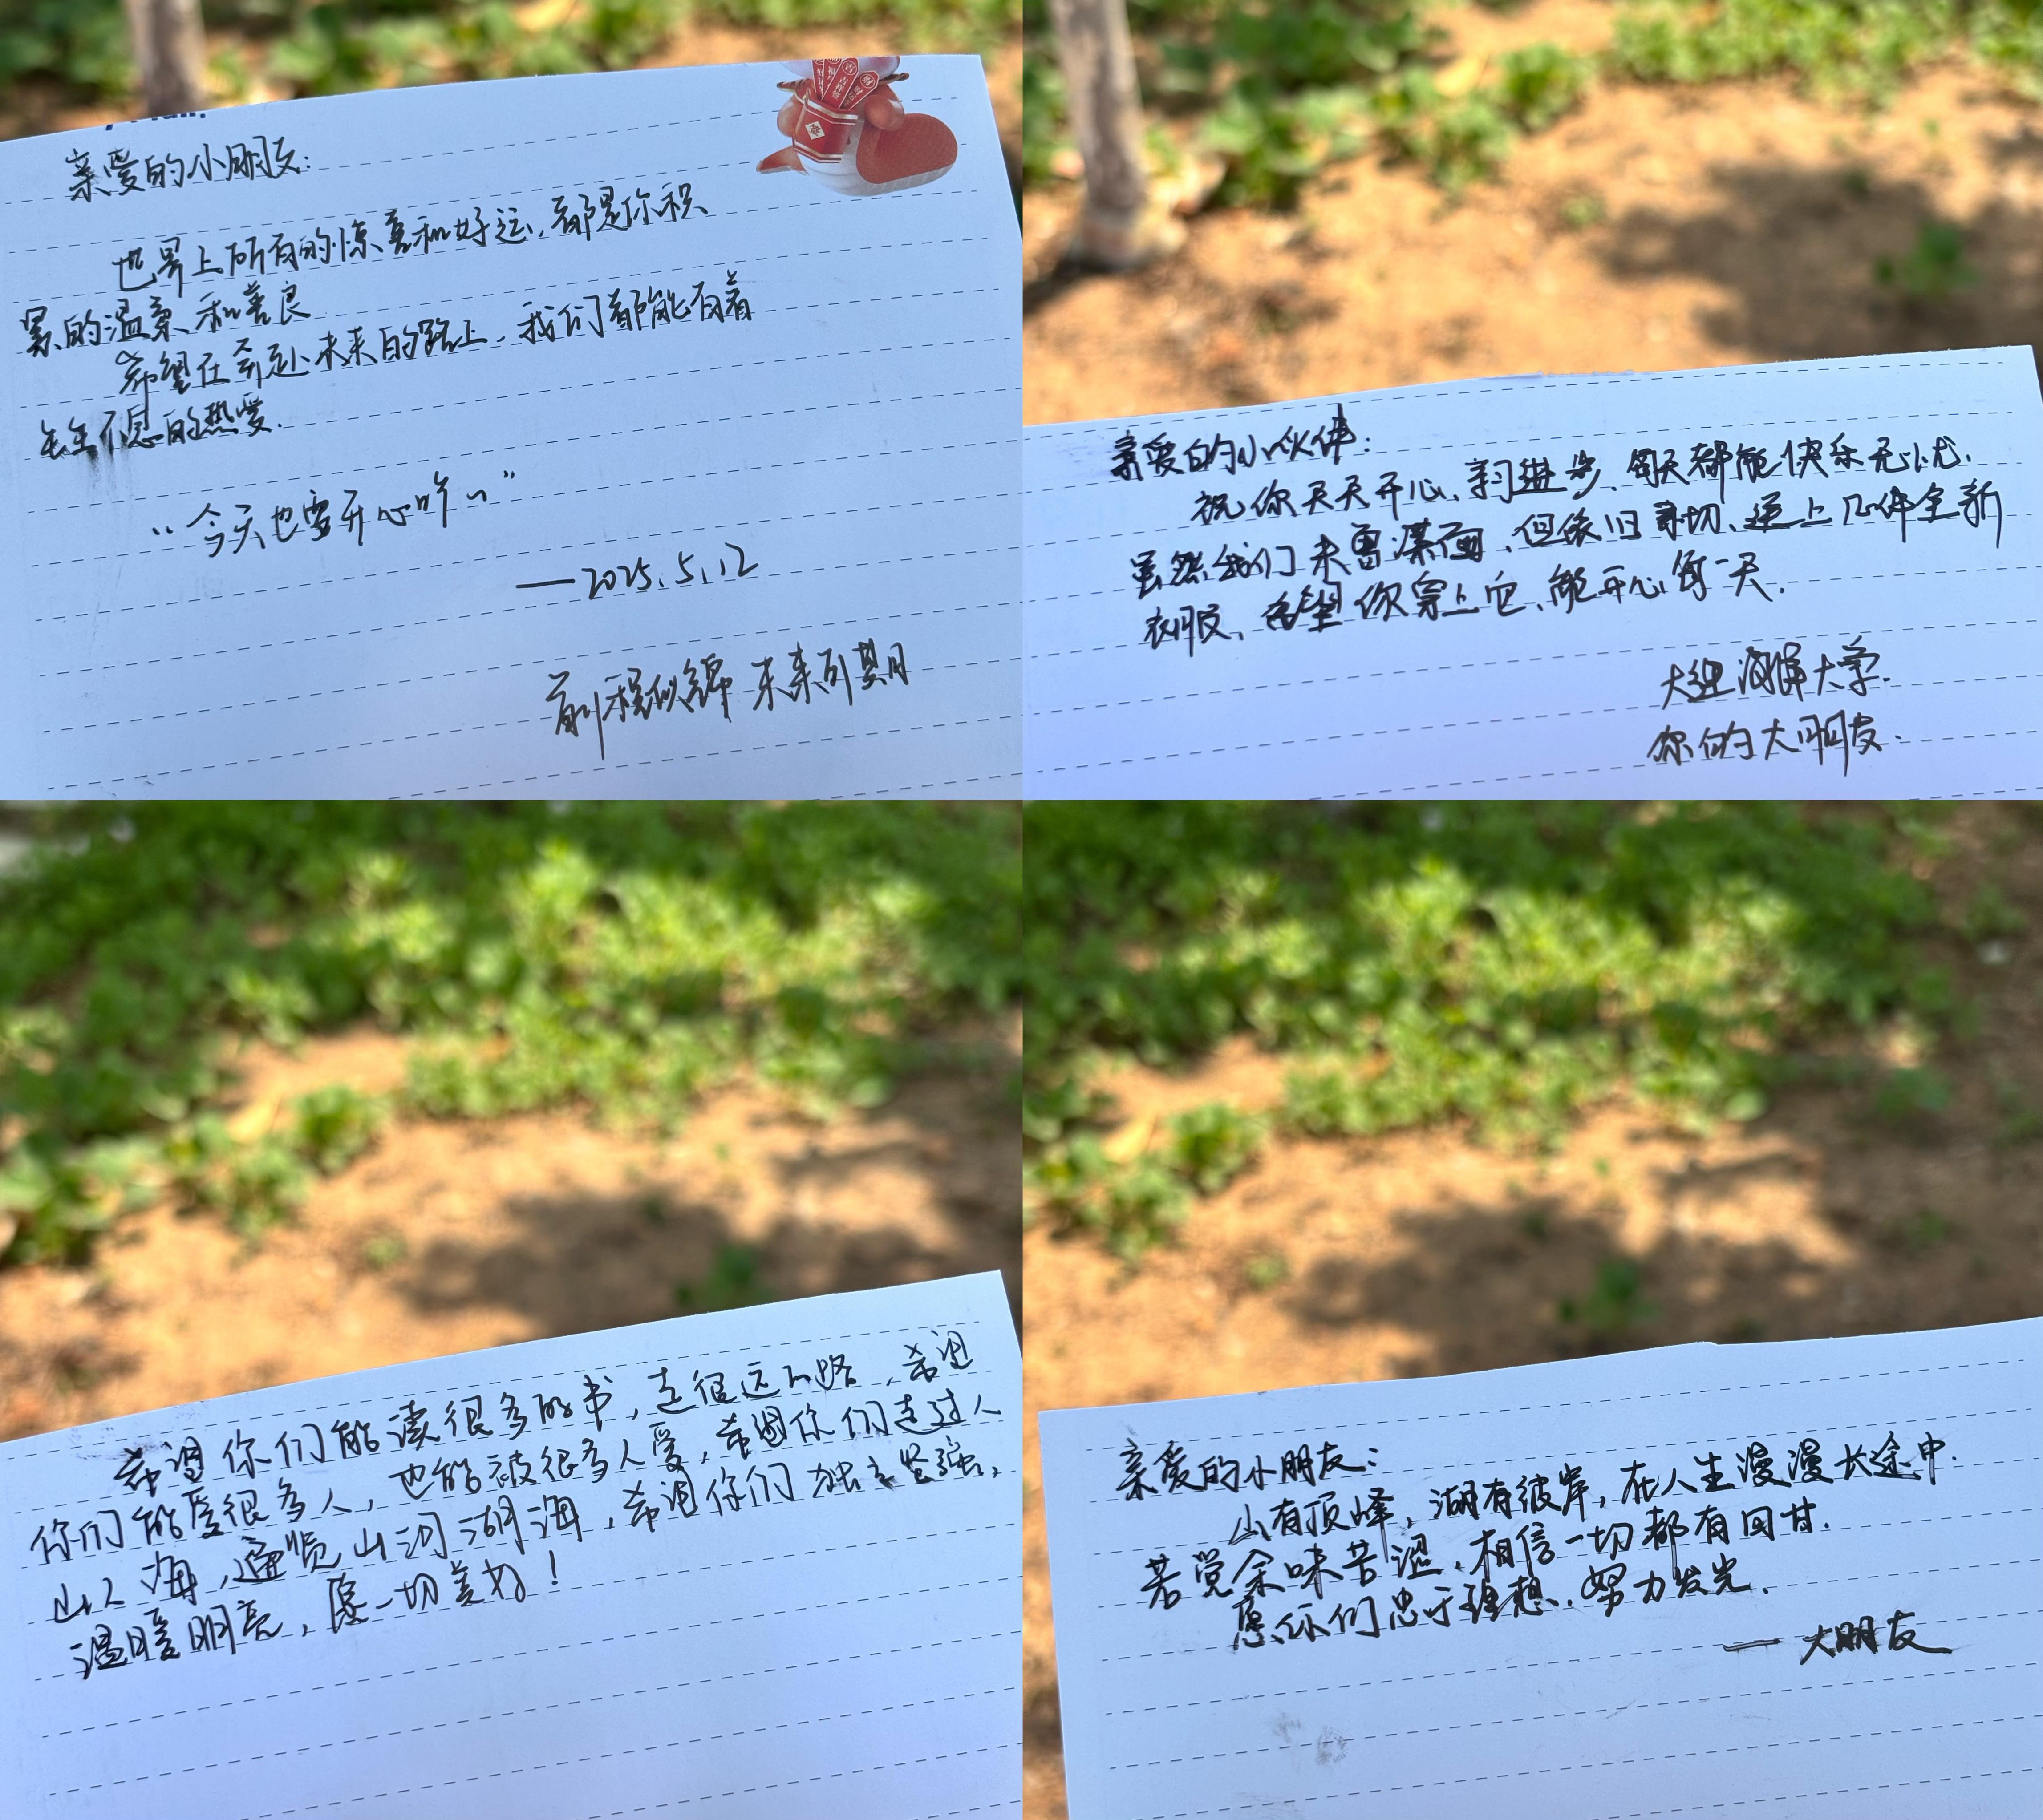 亲爱的小朋友:
世界上所有的惊喜和好运,都是你积
累的温柔和善良
希望在奔赴未来的路上,我们都能有着
生生不息的热爱.
“今天也要开心吖~”
—2025.5.12
前程似锦 未来可期
亲爱的小伙伴:
祝你天天开心、学习进步、每天都能快乐无忧.
虽然我们未曾谋面,但依旧亲切、送上几件全新
衣服、希望你穿上它、能开心每一天.
大连海洋大学.
你的大朋友.
希望你们能读很多的书,走很远的路,希望
你们能爱很多人,也能被很多人爱,希望你们走过人
山人海,遍览山河湖海,希望你们独立坚强,
温暖明亮,愿一切美好!
亲爱的小朋友:
山有顶峰,湖有彼岸,在人生漫漫长途中.
若觉余味苦涩,相信一切都有回甘.
愿你们忠于理想.努力发光.
— 大朋友